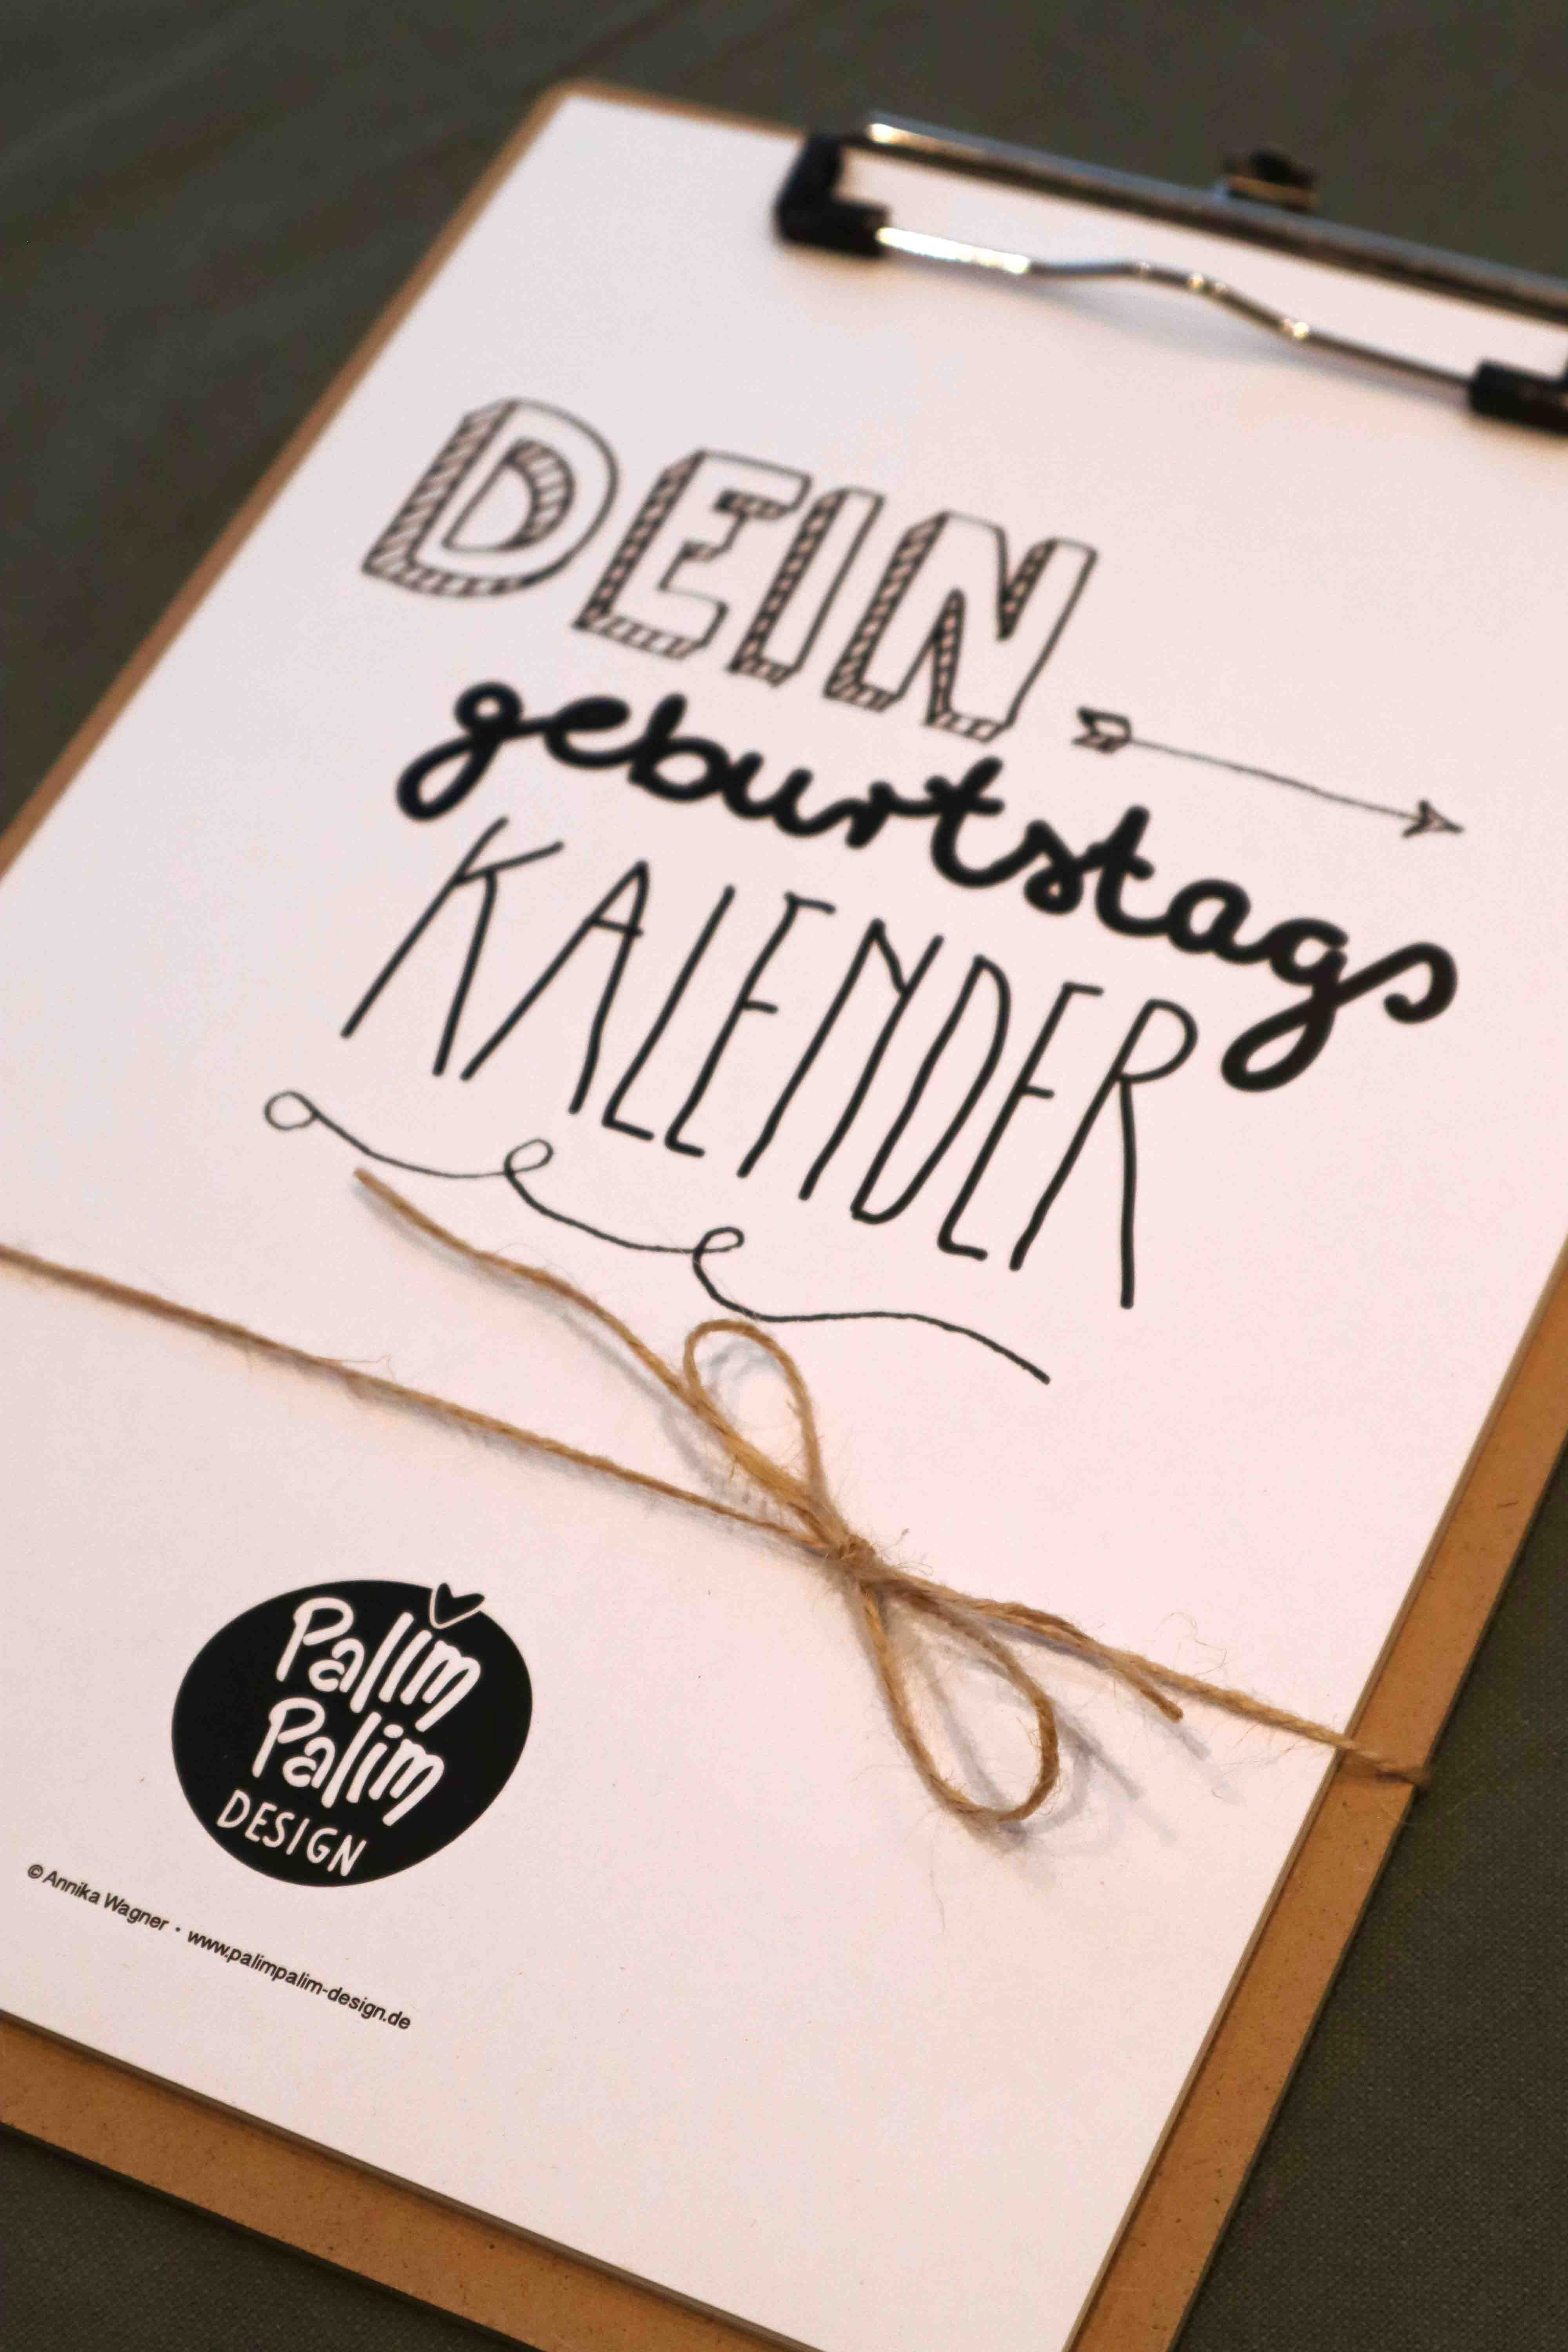 DEIN
geburtstags
KALENDER
Palim
Palim
DESIGN
© Annika Wagner • www.palimpalim-design.de